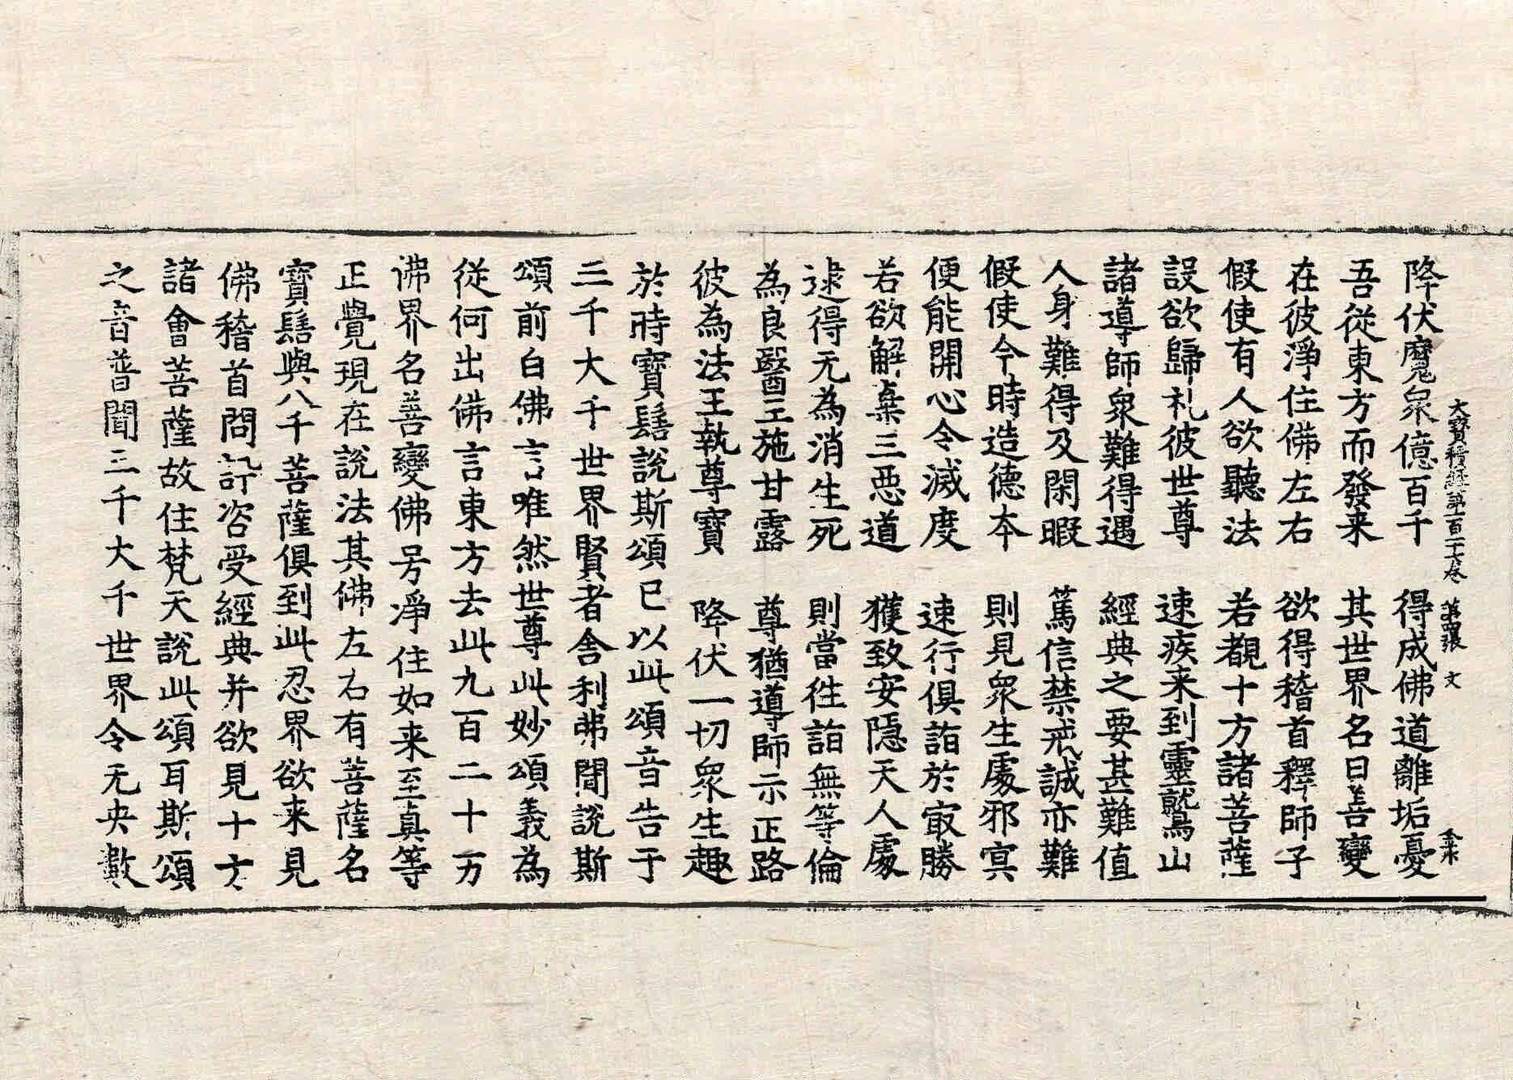 大寶積經第一百一十七卷 張 文
降伏魔眾億百千 得成佛道離垢憂
吾從東方而發来 其世界名曰善變
在彼淨住佛左右 欲得稽首釋師子
假使有人欲聽法 若覩十方諸菩薩
設欲歸礼彼世尊 速疾来到靈鷲山
諸導師眾難得遇 經典之要甚難值
人身難得及閑暇 篤信禁戒誠亦難
假使今時造德本 則見眾生處邪冥
便能開心令滅度 速行俱詣於㝡勝
若欲解棄三惡道 獲致安隱天人處
逮得无為消生死 則當往詣無等倫
為良醫王施甘露 尊猶導師示正路
彼為法王執尊寶 降伏一切眾生趣
於時寶髻說斯頌已以此頌音告于
三千大千世界賢者舍利弗聞說斯
頌前白佛言唯然世尊此妙頌義為
從何出佛言東方去此九百二十万
佛界名善變佛号淨住如来至真等
正覺現在說法其佛左右有菩薩名
寶髻與八千菩薩俱到此忍界欲来見
佛稽首問訊咨受經典并欲見十方
諸會菩薩故住梵天說此頌耳斯頌
之音普聞三千大千世界令无央數